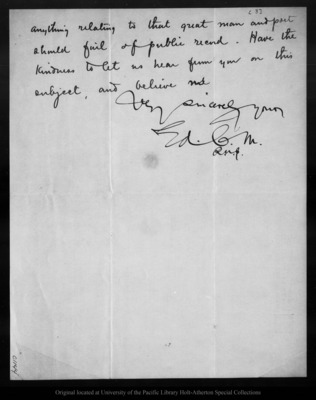 anything relating to that great man and poet
should fail of public record. Have the
kindness to let us hear from you on this
subject, and believe me
Very sincerely yours
Ed. C. M.
Original located at University of the Pacific Library Holt-Atherton Special Collections